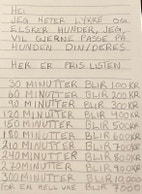 HEI
JEG HETER LYKKE OG
ELSKER HUNDER, JEG
VIL GJERNE PASSE PÅ
HUNDEN DIN/DERES
HER ER PRIS LISTEN
30 MINUTTER BLIR 100 KR
60 MINUTTER BLIR 200 KR
90 MINUTTER BLIR 300 KR
120 MINUTTER BLIR 400 KR
150 MINUTTER BLIR 500 KR
180 MINUTTER BLIR 600 KR
210 MINUTTER BLIR 700 KR
240 MINUTTER BLIR 800 KR
270 MINUTTER BLIR 900 KR
300 MINUTTER BLIR
FOR EN HELL UKE 7000